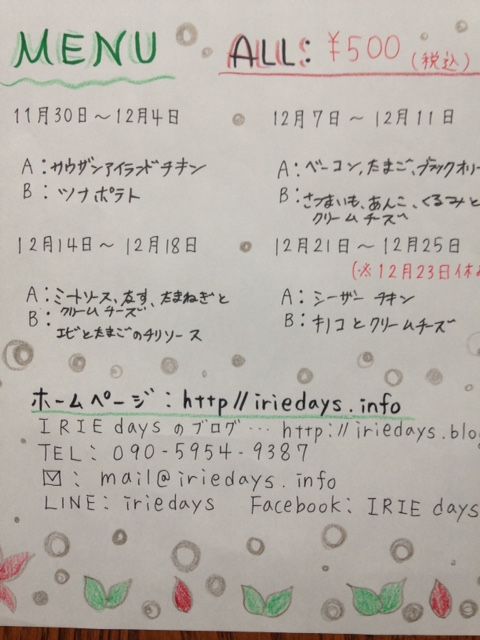 MENU ALL: ¥500 (税込)
11月30日〜12月4日
A：サウザンアイランドチキン
B：ツナポテト
12月7日〜12月11日
A：ベーコン,たまご,ブラックオリー
B：さつまいも、あんこ、くるみと
クリームチーズ
12月14日〜12月18日
A：ミートソース、なす、たまねぎと
クリームチーズ
B：エビとたまごのチリソース
12月21日〜12月25日
(※12月23日休み
A：シーザーチキン
B：キノコとクリームチーズ
ホームページ：http//iriedays.info
IRIE daysのブログ… http://iriedays.blo
TEL：090-5954-9387
✉：mail@iriedays.info
LINE：iriedays Facebook：IRIE days